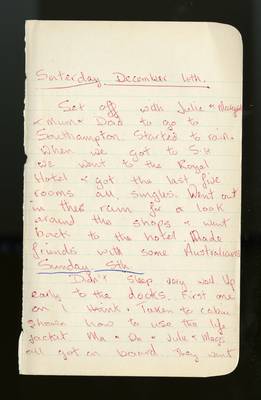 Saterday December 4th.
Set off with Julie & Margaret
& Mum & Dad to go to
Southampton. Started to rain.
When we got to S.H
we went to the Royal
Hotel & got the last five
rooms all singles. Went out
in the rain for a look
around the shops & went
back to the hotel. Made
friends with some Australians
Sunday 5th.
Didn't sleep very well. Up
early to the docks. First one
on I think. Taken to cabin
shown how to use the life
jacket. Ma & Da & Julie & Mags
all got on board. They went